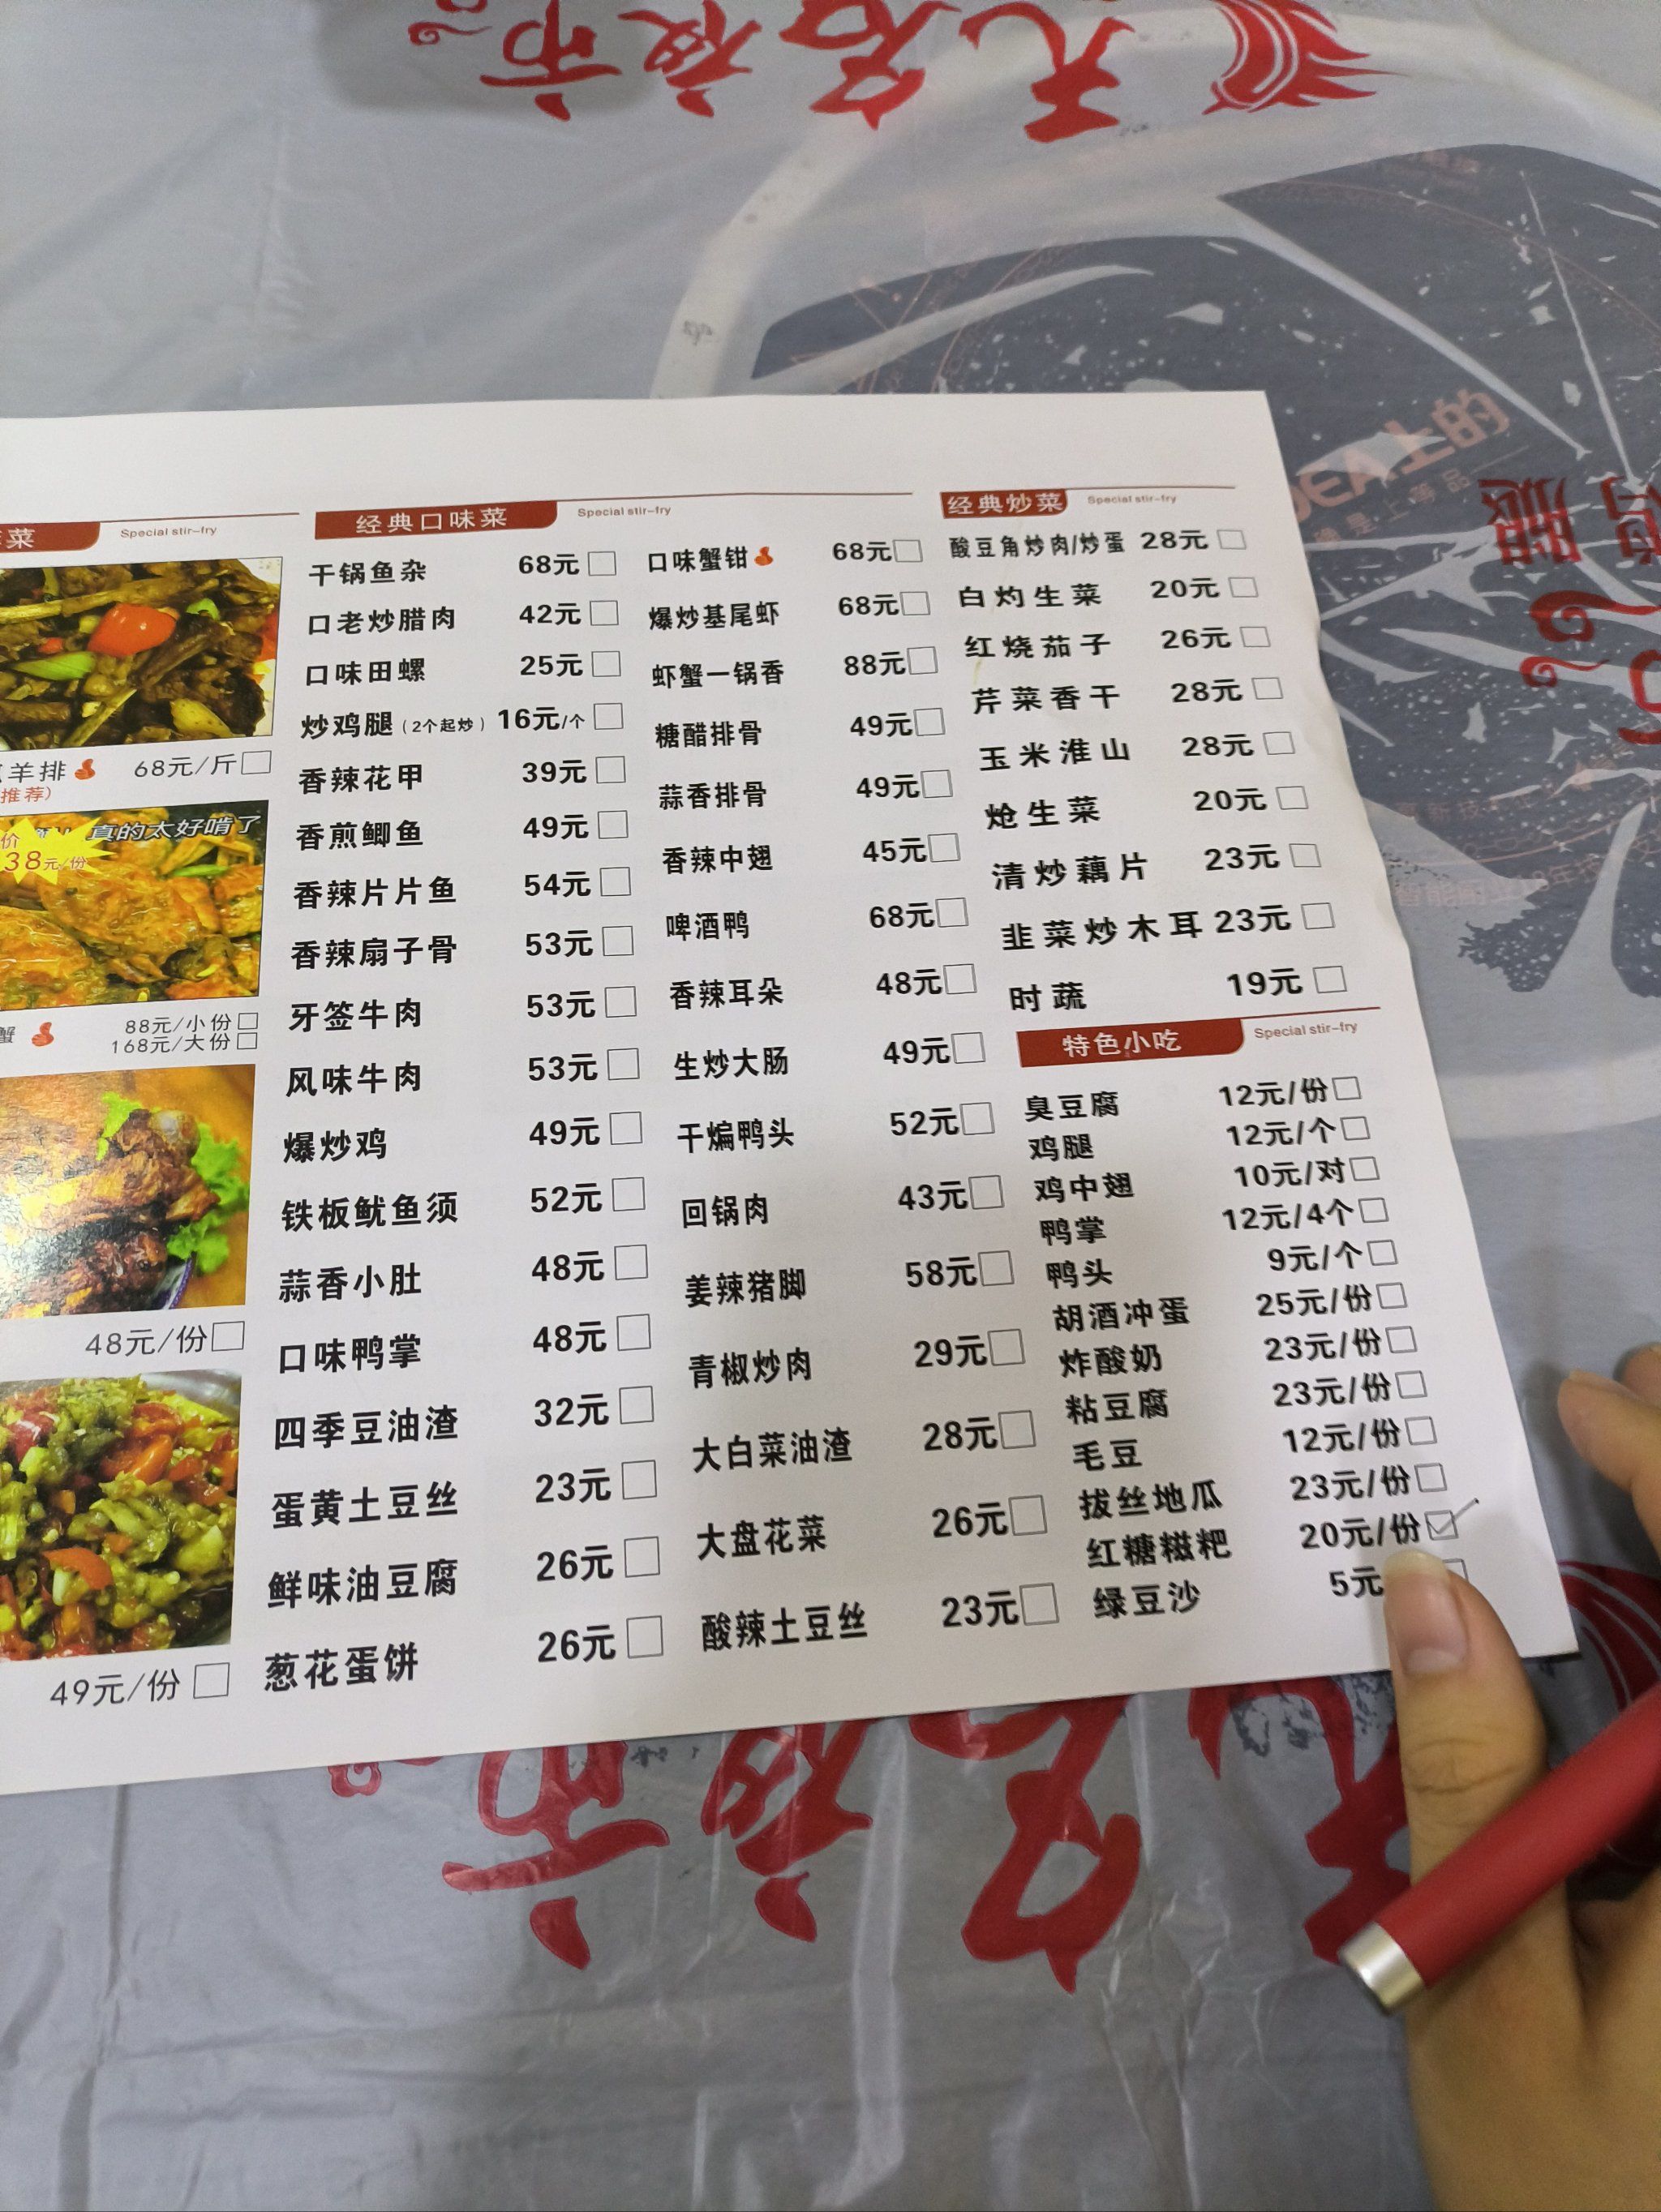 天名夜市
上的
菜 Special stir-fry
羊排 68元/斤
推荐）
真的太好啃了
价
38元/份
蟹 88元/小份
168元/大份
48元/份
49元/份
经典口味菜 Special stir-fry
干锅鱼杂 68元
口老炒腊肉 42元
口味田螺 25元
炒鸡腿（2个起炒）16元/个
香辣花甲 39元
香煎鲫鱼 49元
香辣片片鱼 54元
香辣扇子骨 53元
牙签牛肉 53元
风味牛肉 53元
爆炒鸡 49元
铁板鱿鱼须 52元
蒜香小肚 48元
口味鸭掌 48元
四季豆油渣 32元
蛋黄土豆丝 23元
鲜味油豆腐 26元
葱花蛋饼 26元
口味蟹钳 68元
爆炒基尾虾 68元
虾蟹一锅香 88元
糖醋排骨 49元
蒜香排骨 49元
香辣中翅 45元
啤酒鸭 68元
香辣耳朵 48元
生炒大肠 49元
干煸鸭头 52元
回锅肉 43元
姜辣猪脚 58元
青椒炒肉 29元
大白菜油渣 28元
大盘花菜 26元
酸辣土豆丝 23元
经典炒菜 Special stir-fry
酸豆角炒肉/炒蛋 28元
白灼生菜 20元
红烧茄子 26元
芹菜香干 28元
玉米淮山 28元
炝生菜 20元
清炒藕片 23元
韭菜炒木耳 23元
时蔬 19元
特色小吃 Special stir-fry
臭豆腐 12元/份
鸡腿 12元/个
鸡中翅 10元/对
鸭掌 12元/4个
鸭头 9元/个
胡酒冲蛋 25元/份
炸酸奶 23元/份
粘豆腐 23元/份
毛豆 12元/份
拔丝地瓜 23元/份
红糖糍粑 20元/份
绿豆沙 5元